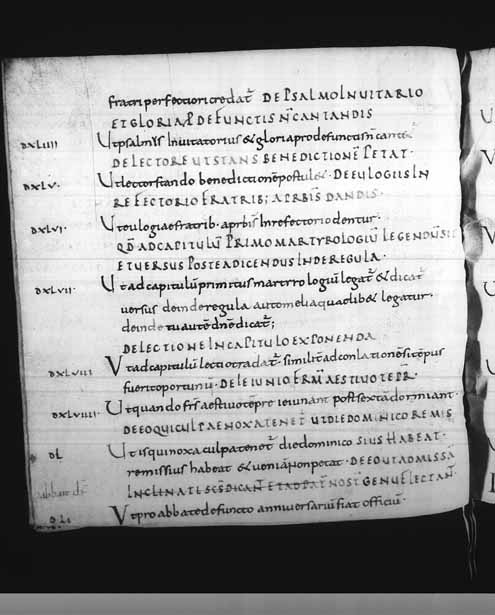 fratri perfectiori credat̄ DE PSALMO INVITARIO
ET GLORIA P̱ DEFUNCTIS N̄ CANTANDIS
DXLIIII Ut psalmus Invitatorius & gloria pro defunctis n̄
DE LECTORE UT STANS BENEDICTIONĒ PETAT·
DXLV· Ut lector stando benedictionē postul&· DE EULOGIIS IN
REFECTORIO FRATRIB; A PRBIS DANDIS·
DXLVI· Ut eulogiae fratrib· a prbis In refectorio dentur·
QD̄ AD CAPITULŪ PRIMO MARTYROLOGIŪ LEGENDŪ SIT
ET VERSUS POSTEA DICENDUS INDE REGULA·
DXLVII· Ut ad capitulū primitus martyrologiū legat̄ & dicat̄
versus deinde regula aut omelia quaelib& legatur·
deinde tu autē dn̄e dicat̄;
DE LECTIONE IN CAPITULO EXPONENDA
DXLVIII Ut ad capitulū lectio tradat̄· similit̄ ad conlationē si tēpus
fuerit oportunū· DE IEIUNIO
DXLVIIII· Ut quando fr̄s aestivo tēpre ieiunant post sextā dormiant·
DE EO QUI CULPAE NOXA TENET̄ UT DIE DOMINICO REMIS
DL Ut is qui noxa culpae tenet̄ die dominico SIUS HABEAT·
remissius habeat & veniā non petat· DE EO UT AD MISSĀ
INCLINATI SC̄S DICANT ET AD PAT̄ NOST̄ GENU FLECTANT̄·
DLI Ut pro abbate defuncto anniversariū fiat officiū·